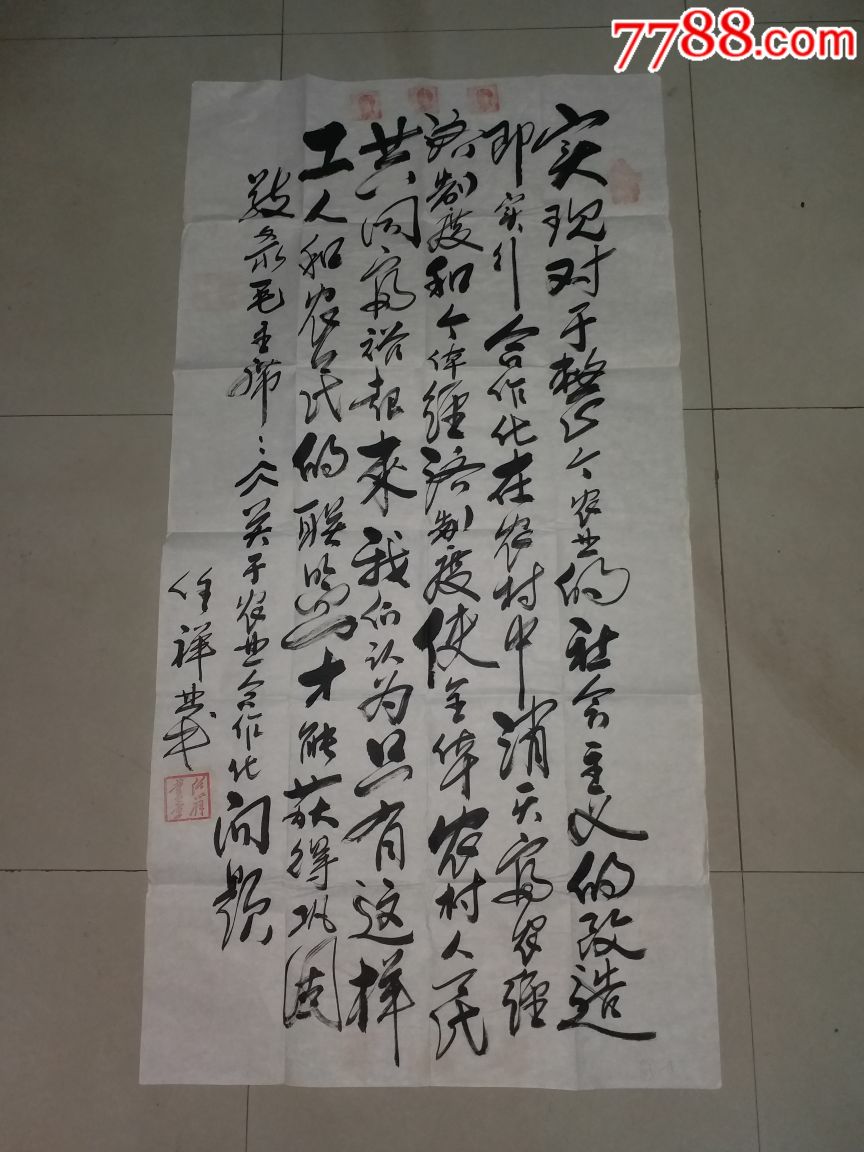 7788.com
实现对于整个农业的社会主义的改造
即实行合作化在农村中消灭富农经
济制度和个体经济制度使全体农村人民
共同富裕起来我们认为只有这样
工人和农民的联盟才能获得巩固
敬录毛主席关于农业合作化问题
任祥